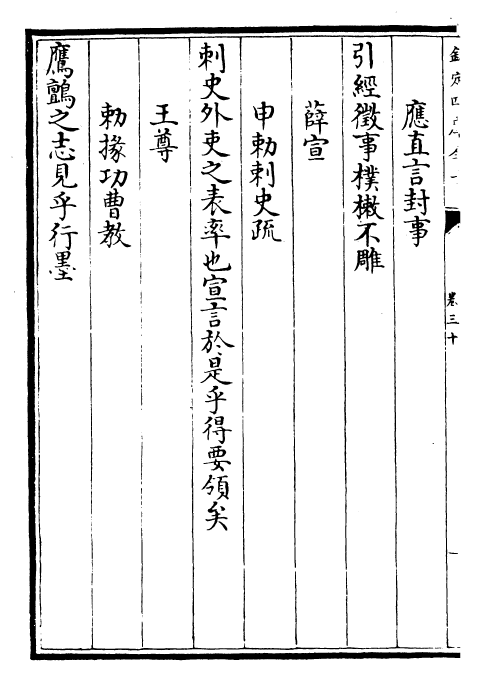 應直言封事
引經徵事樸樕不雕
薛宣
申勅刺史疏
刺史外吏之表率也宣言於是乎得要領矣
王尊
勅掾功曹教
鷹鸇之志見乎行墨
卷三十